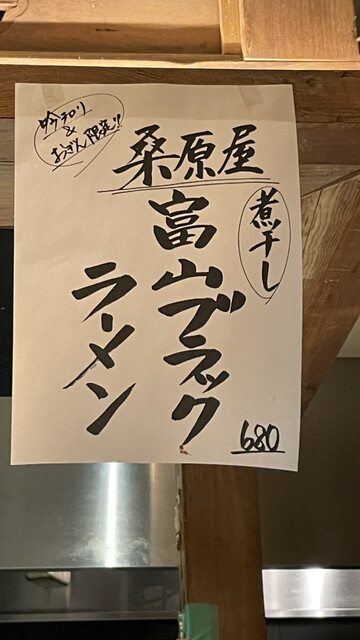 吟チロリ
&
おっさん限定!!
桑原屋
煮干し
富山ブラック
ラーメン
680